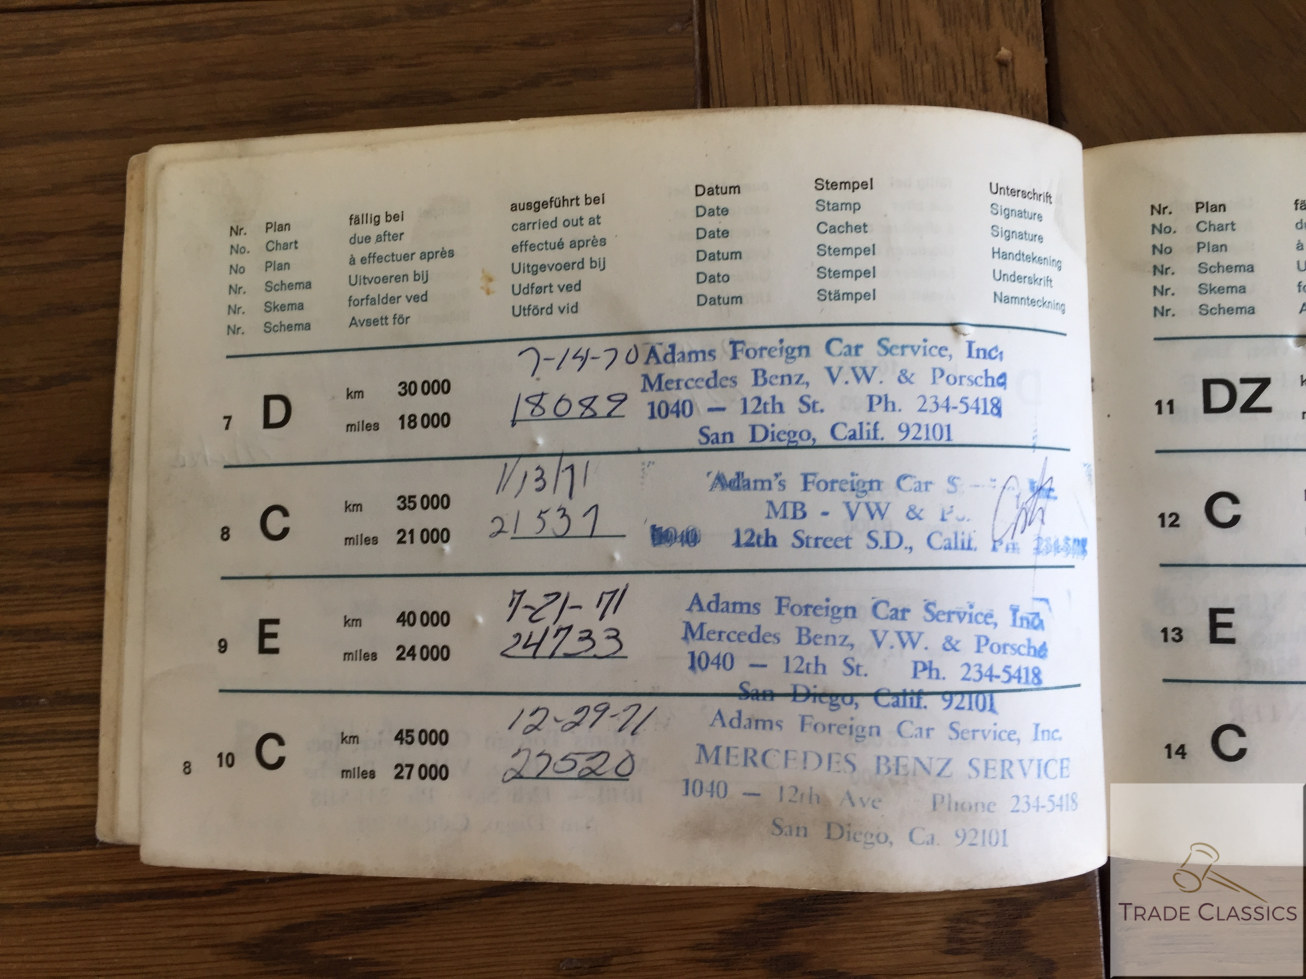 Nr. Plan fällig bei ausgeführt bei Datum Stempel Unterschrift
No. Chart due after carried out at Date Stamp Signature
No Plan à effectuer après effectué après Date Cachet Signature
Nr. Schema Uitvoeren bij Uitgevoerd bij Datum Stempel Handtekening
Nr. Skema forfalder ved Udført ved Dato Stempel Underskrift
Nr. Schema Avsett för Utförd vid Datum Stämpel Namnteckning
7 D km 30 000 miles 18 000
7-14-70
18089
Adams Foreign Car Service, Inc,
Mercedes Benz, V.W. & Porsche
1040 — 12th St. Ph. 234-5418
San Diego, Calif. 92101
8 C km 35 000 miles 21 000
1/13/71
21537
Adam's Foreign Car S
MB - VW &
1040 12th Street S.D., Calif. 234-5418
9 E km 40 000 miles 24 000
7-21-71
24733
Adams Foreign Car Service, Inc.
Mercedes Benz, V.W. & Porsche
1040 — 12th St. Ph. 234-5418
San Diego, Calif. 92101
10 C km 45 000 miles 27 000
12-29-71
27520
Adams Foreign Car Service, Inc.
MERCEDES BENZ SERVICE
1040 — 12th Ave Phone 234-5418
San Diego, Ca. 92101
8
Nr. Plan
No. Chart
No Plan
Nr. Schema
Nr. Skema
Nr. Schema
11 DZ
12 C
13 E
14 C
TRADE CLASSICS